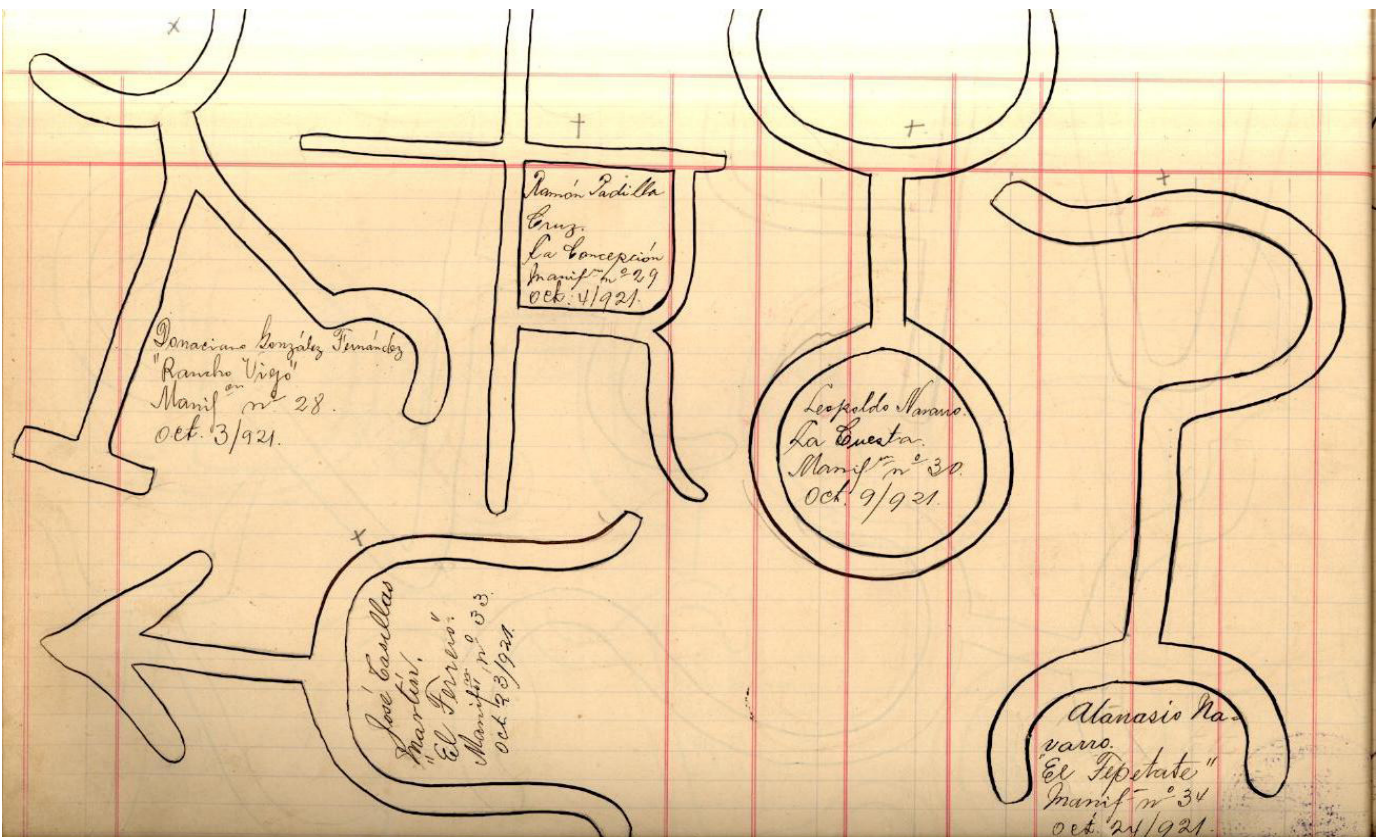 Donaciano González Fernández
"Rancho Viejo"
Manif.on nº 28.
Oct. 3/921.
Ramón Padilla
Cruz.
La Concepción
Manifon nº 29
Oct. 4/921.
Leopoldo Navarro.
La Cuesta.
Manifon nº 30.
Oct. 9/921.
José Casillas
Martín.
"El Terrero".
Manifon nº 33.
Oct. 23/921.
Atanasio Na-
varro.
"El Tepetate"
Manifn nº 34
Oct. 24/921